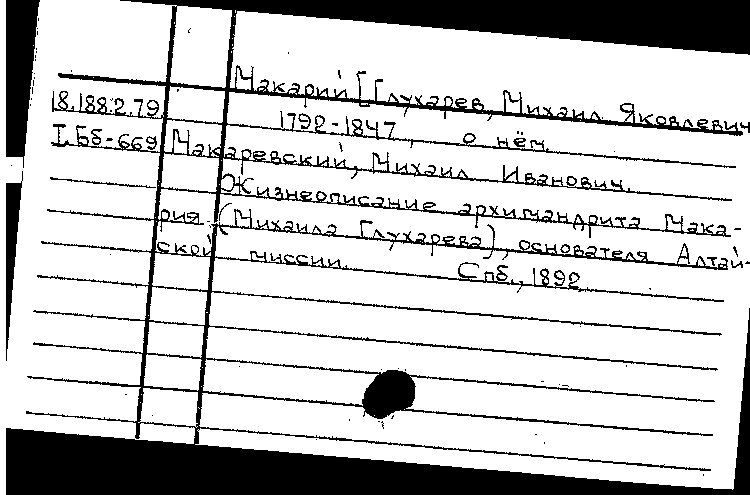 Макарий [Глухарев, Михаил Яковлевич
18.188.2.79. 1792-1847, о нём.
I.Бб-669 Макаревский, Михаил Иванович.
Жизнеописание архимандрита Мака-
рия (Михаила Глухарева), основателя Алтай-
ской миссии. Спб., 1892